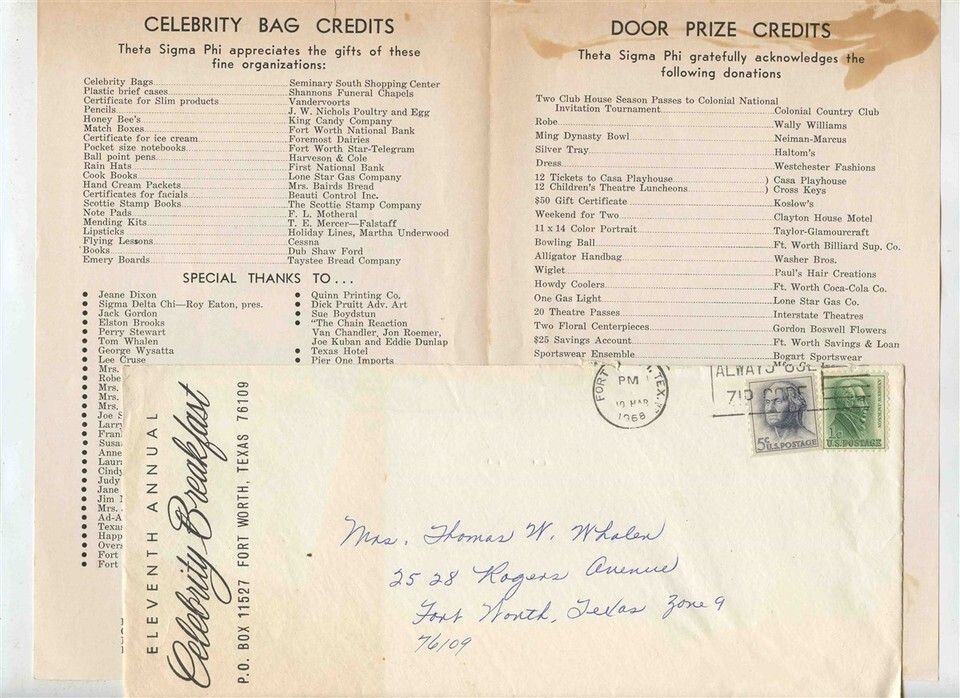 CELEBRITY BAG CREDITS
Theta Sigma Phi appreciates the gifts of these
fine organizations:
Celebrity Bags Seminary South Shopping Center
Plastic brief cases Shannons Funeral Chapels
Certificate for Slim products Vandervoorts
Pencils J. W. Nichols Poultry and Egg
Honey Bee's King Candy Company
Match Boxes Fort Worth National Bank
Certificate for ice cream Foremost Dairies
Pocket size notebooks Fort Worth Star-Telegram
Ball point pens Harveson & Cole
Rain Hats First National Bank
Cook Books Lone Star Gas Company
Hand Cream Packets Mrs. Bairds Bread
Certificates for facials Beauti Control Inc.
Scottie Stamp Books The Scottie Stamp Company
Note Pads F. L. Motheral
Mending Kits T. E. Mercer—Falstaff
Lipsticks Holiday Lines, Martha Underwood
Flying Lessons Cessna
Books Dub Shaw Ford
Emery Boards Taystee Bread Company
SPECIAL THANKS TO...
Jeane Dixon
Sigma Delta Chi—Roy Eaton, pres.
Jack Gordon
Elston Brooks
Perry Stewart
Tom Whalen
George Wysatta
Lee Cruse
Mrs.
Robe
Mrs.
Mrs.
Mrs.
Joe S
Larry
Fran
Susa
Anne
Laura
Cindy
Judy
Jane
Jim
Mrs.
Ad-A
Texas
Happ
Overs
Fort
Fort
Quinn Printing Co.
Dick Pruitt Adv. Art
Sue Boydstun
"The Chain Reaction
Van Chandler, Jon Roemer,
Joe Kuban and Eddie Dunlap
Texas Hotel
Pier One Imports
DOOR PRIZE CREDITS
Theta Sigma Phi gratefully acknowledges the
following donations
Two Club House Season Passes to Colonial National
Invitation Tournament Colonial Country Club
Robe Wally Williams
Ming Dynasty Bowl Neiman-Marcus
Silver Tray Haltom's
Dress Westchester Fashions
12 Tickets to Casa Playhouse ) Casa Playhouse
12 Children's Theatre Luncheons ) Cross Keys
$50 Gift Certificate Koslow's
Weekend for Two Clayton House Motel
11 x 14 Color Portrait Taylor-Glamourcraft
Bowling Ball Ft. Worth Billiard Sup. Co.
Alligator Handbag Washer Bros.
Wiglet Paul's Hair Creations
Howdy Coolers Ft. Worth Coca-Cola Co.
One Gas Light Lone Star Gas Co.
20 Theatre Passes Interstate Theatres
Two Floral Centerpieces Gordon Boswell Flowers
$25 Savings Account Ft. Worth Savings & Loan
Sportswear Ensemble Bogart Sportswear
ELEVENTH ANNUAL
Celebrity Breakfast
P.O. BOX 11527 FORT WORTH, TEXAS 76109
FORT TEX.
PM
MAR
1968
ALWAYS USE
ZIP CODE
5c U.S. POSTAGE
1c
U.S. POSTAGE
Mrs. Thomas W. Whalen
2528 Rogers Avenue
Fort Worth, Texas Zone 9
76109